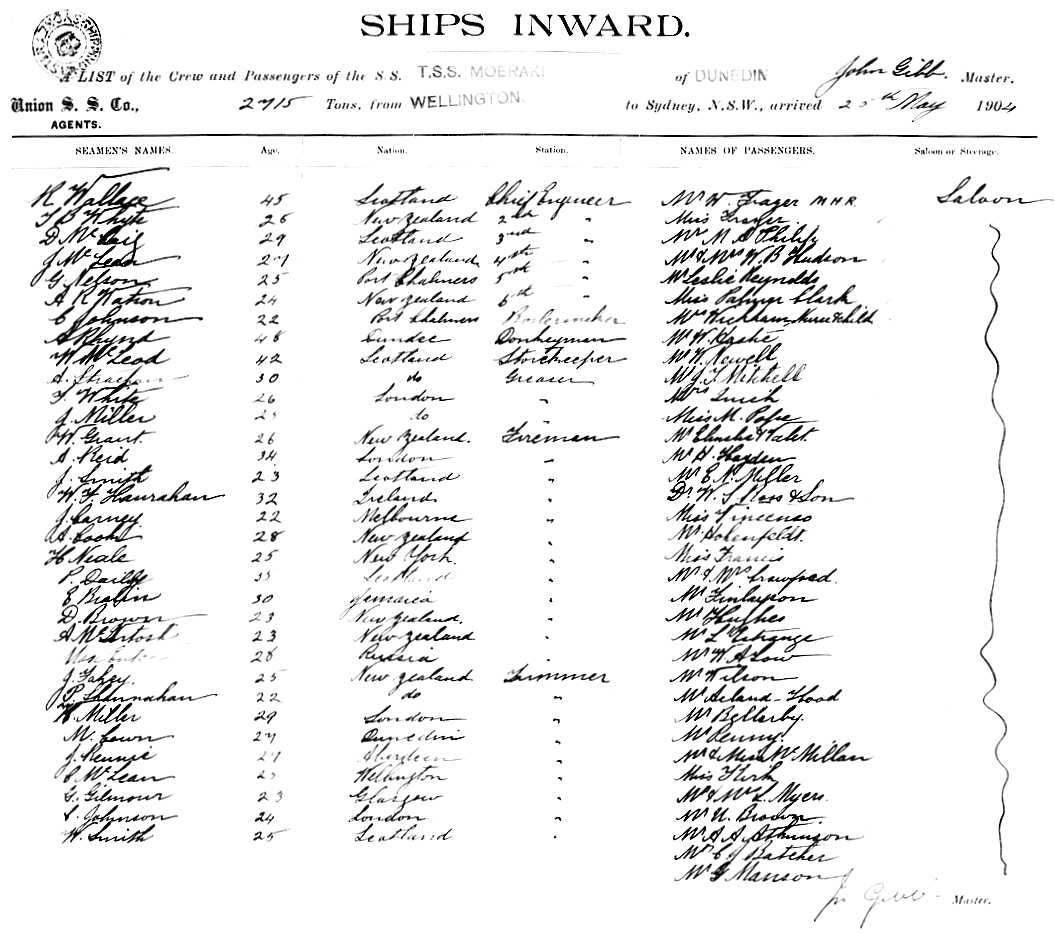 SHIPS INWARD.
A LIST of the Crew and Passengers of the S.S. T.S.S. MOERAKI of DUNEDIN John Gibb Master.
Union S. S. Co., 2715 Tons, from WELLINGTON. to Sydney, N.S.W., arrived 25th May 1904
AGENTS.
SEAMEN'S NAMES. Age. Nation. Station. NAMES OF PASSENGERS. Saloon or Steerage.
R Wallace 45 Scotland Chief Engineer Mr W. Frazer M H R Saloon
T B Whyte 26 New Zealand 2nd " Miss Frazer
D. McCaig 29 Scotland 3rd " Mr M A Philip
J McLean 27 New Zealand 4th " Mr & Mrs W. B Hudson
G. Nelson 25 Port Chalmers 5th " Mr Leslie Reynolds
A R Watson 24 New Zealand 6th " Miss Palmer Clark
C Johnson 22 Port Chalmers Boilermaker Mrs Wickham, Nurse & child
A Rhynd 48 Dundee Donkeyman Mr W. Hastie
W. McLeod 42 Scotland Storekeeper Mr W. Newell
A. Strachan 30 do Greaser Mr J. T Mitchell
F. White 26 London " Mrs
J. Miller do " Miss M. Pope
W. Grant. 26 New Zealand. Fireman Mr
A. Reid 34 London " Mr H. Hayden
J. Smith 23 Scotland " Mr E N. Miller
W. F. Hanrahan 32 Ireland " Dr. W. S Ross & Son
J. Carney 22 Melbourne " Miss Vincenso
A. Cook 28 New Zealand " Mr Hohenfeldt.
H Neale 25 New York. " Miss Francis
P. Dailly 33 Scotland " Mr & Mrs Crawford.
E Bralin 30 Jamaica " Mr Finlayson
D. Brown 23 New Zealand. " Mr Hughes
A McIntosh 23 New Zealand " Mr L'Estrange
28 Russia " Mr W A Low
J. Fahey. 25 New Zealand Trimmer Mr Wilson
P. Shannahan 22 do " Mr Acland-Hood
W. Miller 29 London " Mr Bellerby.
M. Cown 27 Dunedin " Mr Penny.
J. Rennie 27 Aberdeen " Mr & Miss McMillan
C McLean Wellington " Miss Kirk
G. Gilmour 23 Glasgow " Mr & Mrs L. Myers.
S. Johnson 24 London " Mr N. Brown.
W. Smith 25 Scotland " Mr A A. Atkinson
Mr C J Batcher
Mr G Manson
Jn Gibb Master.